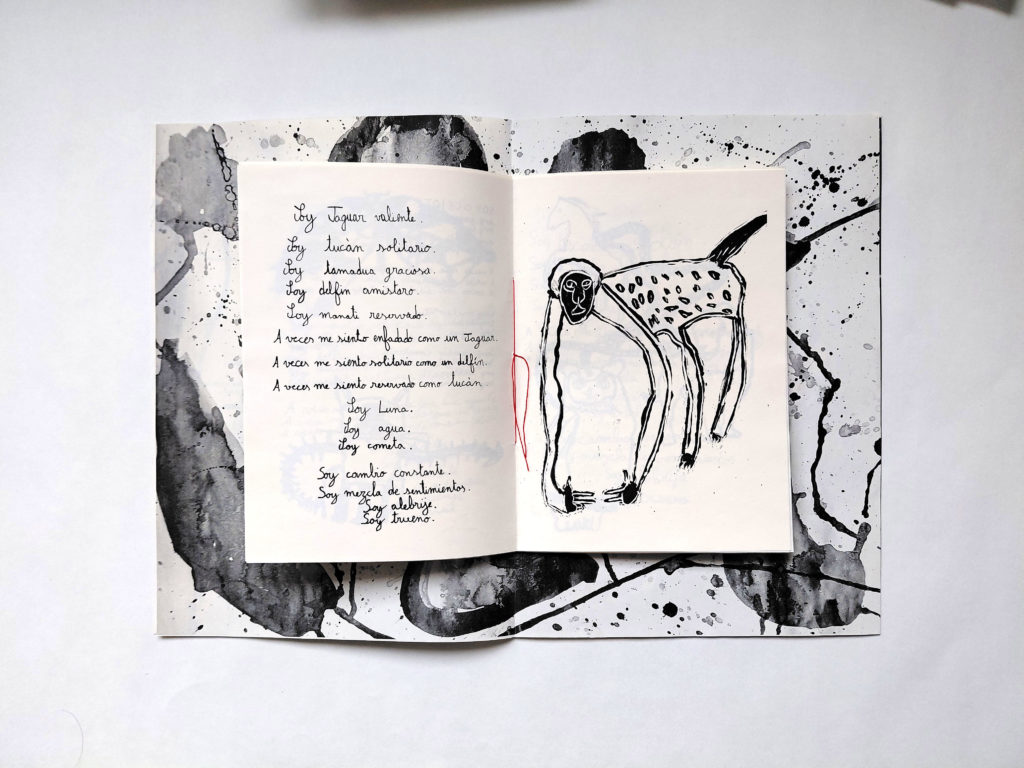 Soy Jaguar valiente.
Soy tucàn solitario.
Soy tamadua graciosa.
Soy delfín amistoso.
Soy manatí reservado.
A veces me siento enfadado como un Jaguar.
A veces me siento solitario como un delfín.
A veces me siento reservado como tucàn.
Soy Luna.
Soy agua.
Soy cometa.
Soy cambio constante.
Soy mezcla de sentimientos.
Soy alebrije.
Soy trueno.